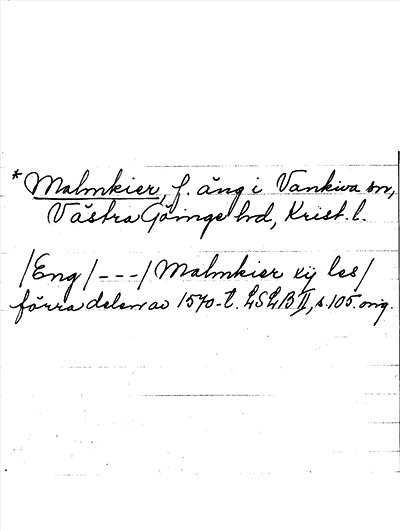 * Malmkier, f. äng i Vankiva sn,
Västra Göinge hd, Krist. l.
/Eng/---/Malmkier xij les/
förra delen av 1570-t. LSLB II, s. 105. orig.